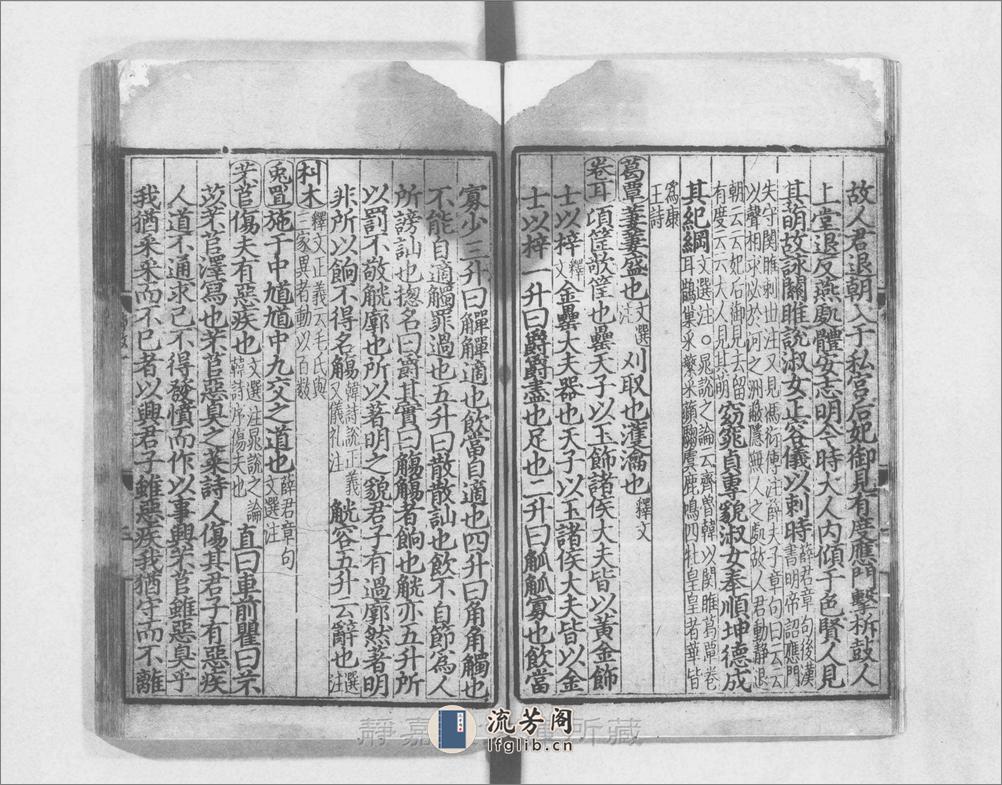 故人君退朝入于私宮后妃御見有度應門擊柝鼓人
上堂退反燕處體安志明今時大人內傾于色賢人見
其萌故詠關雎說淑女正容儀以刺時薛君章句後漢書明帝詔應門
失守關雎刺世注又見馮衍傳注薛夫子章句曰云云
以聲相求必於河之洲蔽隱無人之處故人君動靜退
朝云云妃后御見去留
有度云云大人見其萌窈窕貞專貌淑女奉順坤德成
其紀綱文選注○晁說之論云齊魯韓以關雎葛覃卷
耳鵲巢采蘩采蘋騶虞鹿鳴四牡皇皇者華皆
為康
王詩
葛覃萋萋盛也文選注刈取也濩瀹也釋文
卷耳頃筐欹筐也罍天子以玉飾諸侯大夫皆以黃金飾
士以梓釋文金罍大夫器也天子以玉諸侯大夫皆以金
士以梓一升曰爵爵盡也足也二升曰觚觚寡也飲當
寡少三升曰觶觶適也飲當自適也四升曰角角觸也
不能自適觸罪過也五升曰散散訕也飲不自節為人
所謗訕也揔名曰爵其實曰觴觴者餉也觥亦五升所
以罰不敬觥廓也所以著明之貌君子有過廓然著明
非所以餉不得名觴韓詩說正義又儀礼注觥容五升云辭也選注
朻木釋文正義云毛氏與
三家異者動以百數
兎罝施于中馗馗中九交之道也薛君章句文選注
芣苢傷夫有惡疾也文選注晁說之論韓詩序傷夫也直曰車前瞿曰芣
苡芣苢澤寫也芣苢惡臭之菜詩人傷其君子有惡疾
人道不通求已不得發憤而作以事興芣苢雖惡臭乎
我猶采采而不已者以興君子雖惡疾我猶守而不離
靜嘉 所藏
流芳阁
lfglib.cn